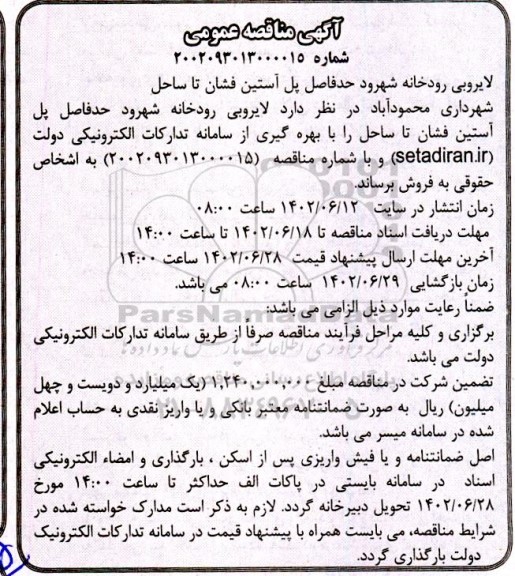 آگهی مناقصه عمومی
شماره ۲۰۰۲۰۹۳۰۱۳۰۰۰۰۱۵
لایروبی رودخانه شهرود حدفاصل پل آستین فشان تا ساحل
شهرداری محمودآباد در نظر دارد لایروبی رودخانه شهرود حدفاصل پل
آستین فشان تا ساحل را با بهره گیری از سامانه تدارکات الکترونیکی دولت
(setadiran.ir) و با شماره مناقصه (۲۰۰۲۰۹۳۰۱۳۰۰۰۰۱۵) به اشخاص
حقوقی به فروش برساند.
زمان انتشار در سایت ۱۴۰۲/۰۶/۱۲ ساعت ۰۸:۰۰
مهلت دریافت اسناد مناقصه تا ۱۴۰۲/۰۶/۱۸ تا ساعت ۱۴:۰۰
آخرین مهلت ارسال پیشنهاد قیمت ۱۴۰۲/۰۶/۲۸ ساعت ۱۴:۰۰
زمان بازگشایی ۱۴۰۲/۰۶/۲۹ ساعت ۰۸:۰۰ می باشد.
ضمناً رعایت موارد ذیل الزامی می باشد:
برگزاری و کلیه مراحل فرآیند مناقصه صرفا از طریق سامانه تدارکات الکترونیکی
دولت می باشد.
تضمین شرکت در مناقصه مبلغ ۱,۲۴۰,۰۰۰,۰۰۰ (یک میلیارد و دویست و چهل
میلیون) ریال به صورت ضمانتنامه معتبر بانکی و یا واریز نقدی به حساب اعلام
شده در سامانه میسر می باشد.
اصل ضمانتنامه و یا فیش واریزی پس از اسکن ، بارگذاری و امضاء الکترونیکی
اسناد در سامانه بایستی در پاکات الف حداکثر تا ساعت ۱۴:۰۰ مورخ
۱۴۰۲/۰۶/۲۸ تحویل دبیرخانه گردد. لازم به ذکر است مدارک خواسته شده در
شرایط مناقصه، می بایست همراه با پیشنهاد قیمت در سامانه تدارکات الکترونیک
دولت بارگذاری گردد.
ParsNamadData